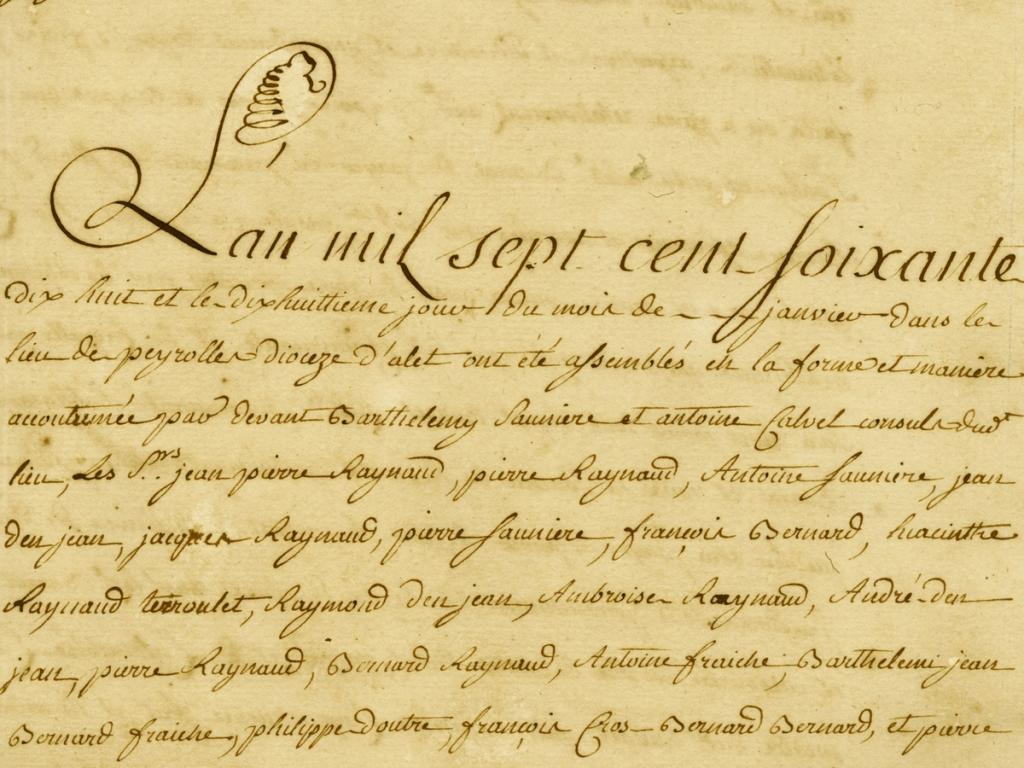 L'an mil sept cent soixante
dix huit et le dixhuittieme jour du mois de janvier dans le
lieu de peyrolles Dioceze d'alet ont été assemblés en la forme et maniere
acoutumée par devant Barthelemy Sauniere et antoine Calvet consuls dud.t
lieu, Les S.rs jean pierre Raynaud, pierre Raynaud, Antoine Sauniere, jean
denjean, jacques Raynaud, pierre Sauniere, françois Bernard, hiacinthe
Raynaud terroulet, Raymond denjean, Ambroise Raynaud, André den
jean, pierre Raynaud, Bernard Raynaud, Antoine fraiche, Barthelemi jean
Bernard fraiche, philippe Doutre, françois Cros Bernard Bernard, et pierre